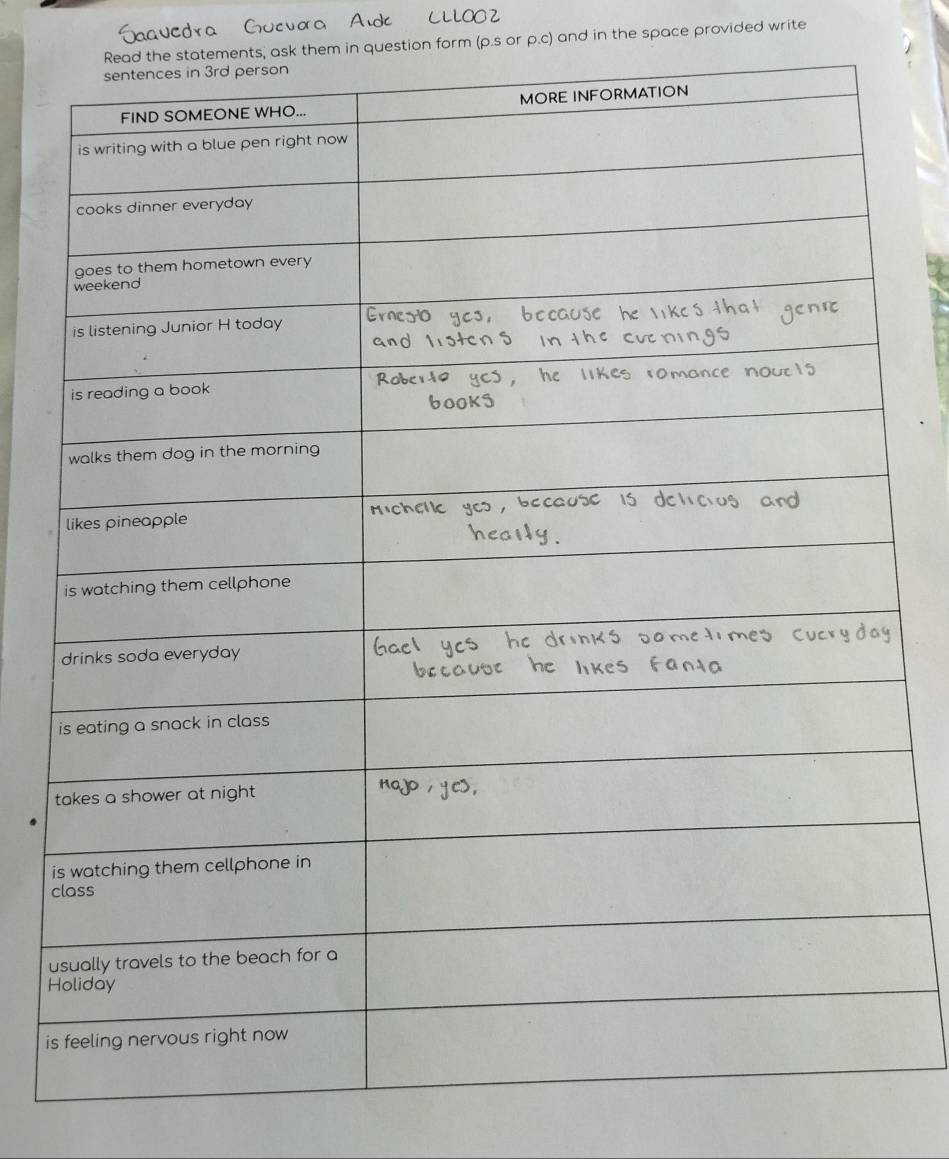 Saavedra Guevara Aide CLL002
Read the statements, ask them in question form (p.s or p.c) and in the space provided write
sentences in 3rd person
FIND SOMEONE WHO...
MORE INFORMATION
is writing with a blue pen right now
cooks dinner everyday
goes to them hometown every
weekend
is listening Junior H today
Ernesto yes, because he likes that genre
and listens in the evenings
is reading a book
Roberto yes, he likes romance novels
books
walks them dog in the morning
likes pineapple
Michelle yes, because is delicius and
healty.
is watching them cellphone
drinks soda everyday
Gael yes he drinks sometimes everyday
because he likes fanta
is eating a snack in class
takes a shower at night
Majo, yes,
is watching them cellphone in
class
usually travels to the beach for a
Holiday
is feeling nervous right now